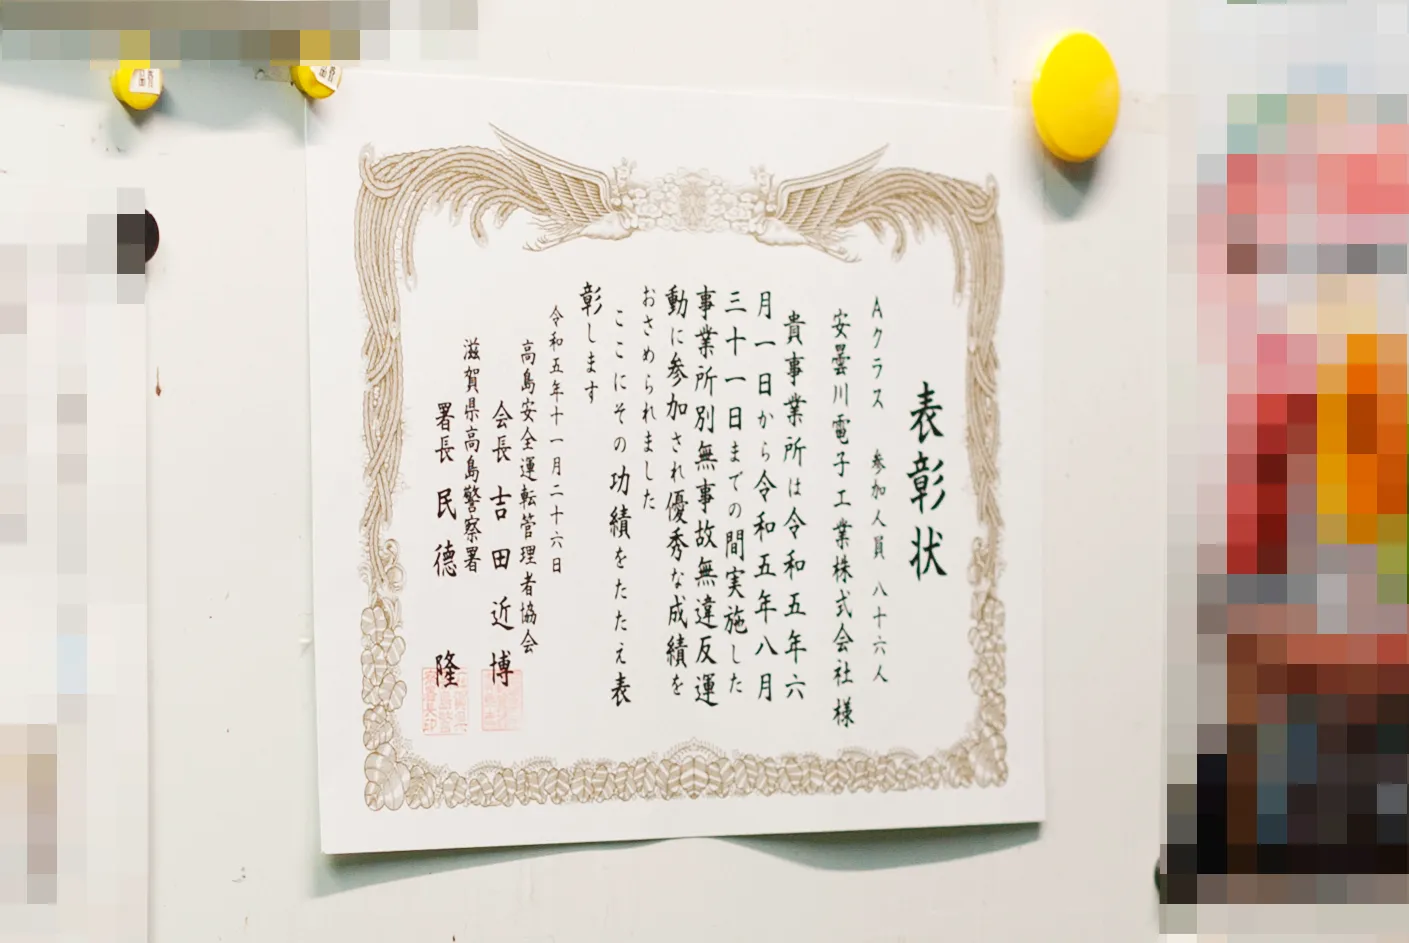 表彰状
Aクラス 参加人員 八十六人
安曇川電子工業株式会社 様
貴事業所は令和五年六
月一日から令和五年八月
三十一日までの間実施した
事業所別無事故無違反運
動に参加され優秀な成績を
おさめられました
ここにその功績をたたえ表
彰します
令和五年十一月二十六日
高島安全運転管理者協会
会長 吉田近博
滋賀県高島警察署
署長 民徳 隆